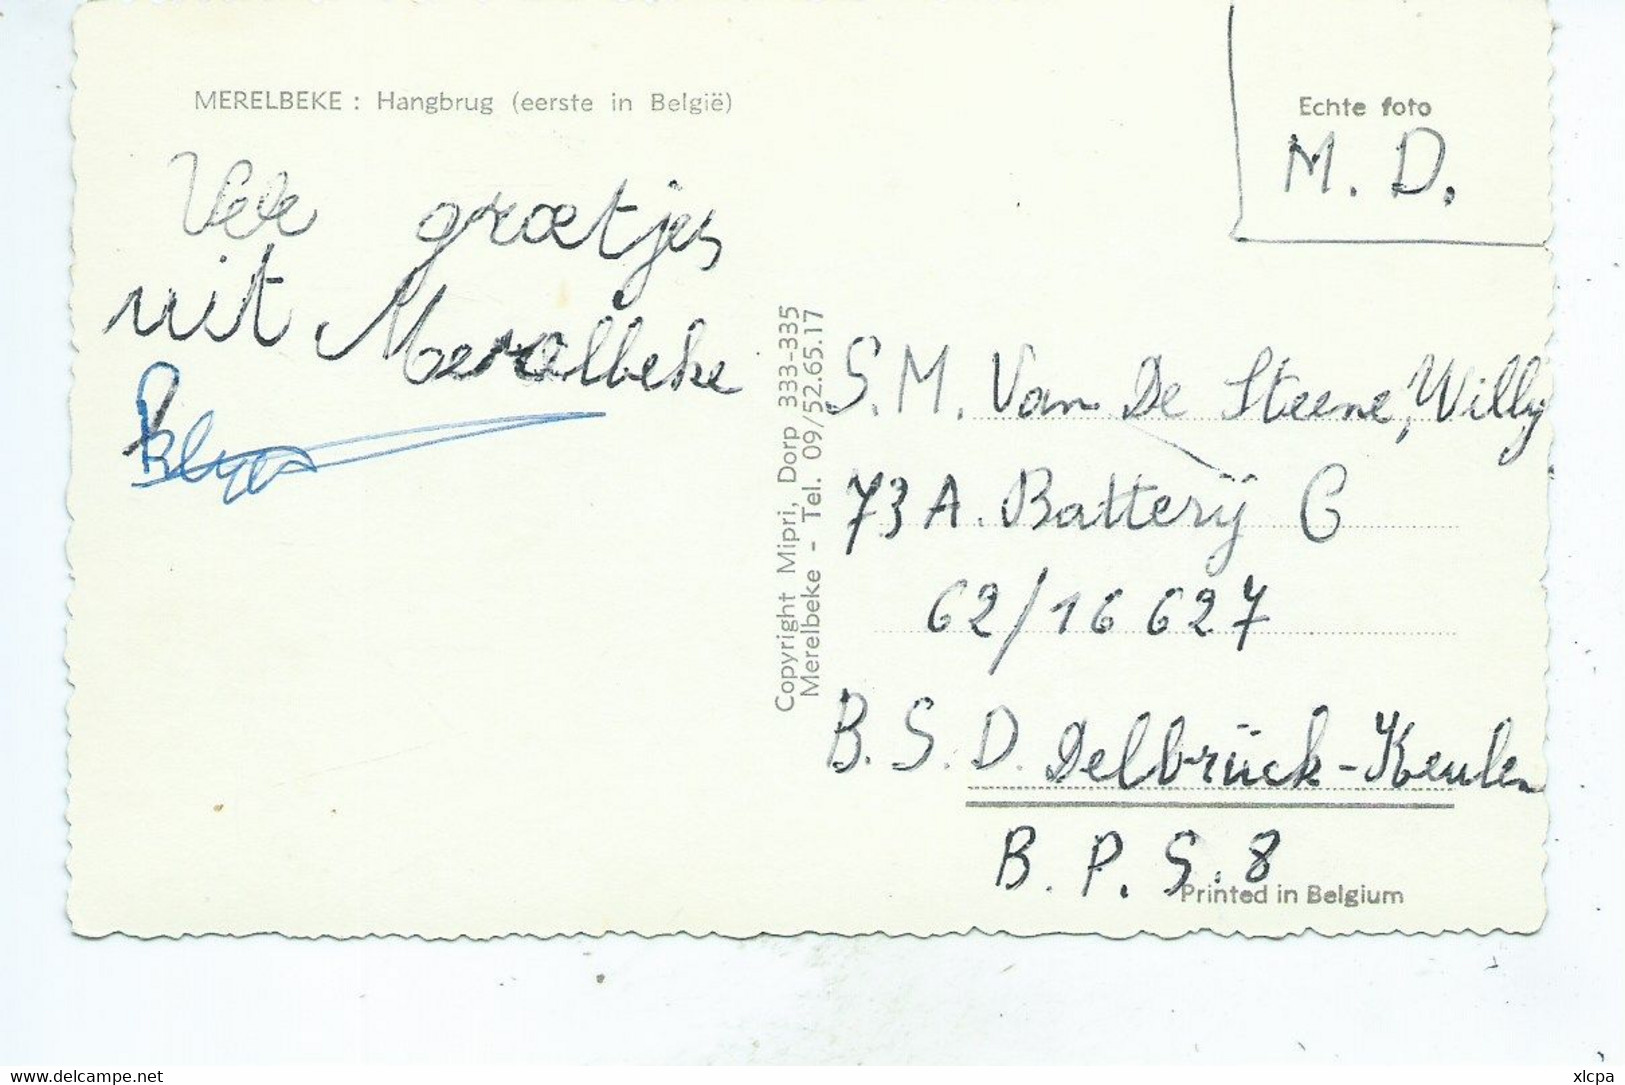 MERELBEKE : Hangbrug (eerste in België)
Echte foto
M. D.
Vele groetjes
uit Merelbeke
Copyright Mipri, Dorp 333-335
Merelbeke - Tel. 09/52.65.17
S.M. Van De Steene, Willy
73 A. Batterij C
62/16627
B.S.D. Delbrück-Keulen
B.P.S. 8
Printed in Belgium
www.delcampe.net
xlcpa